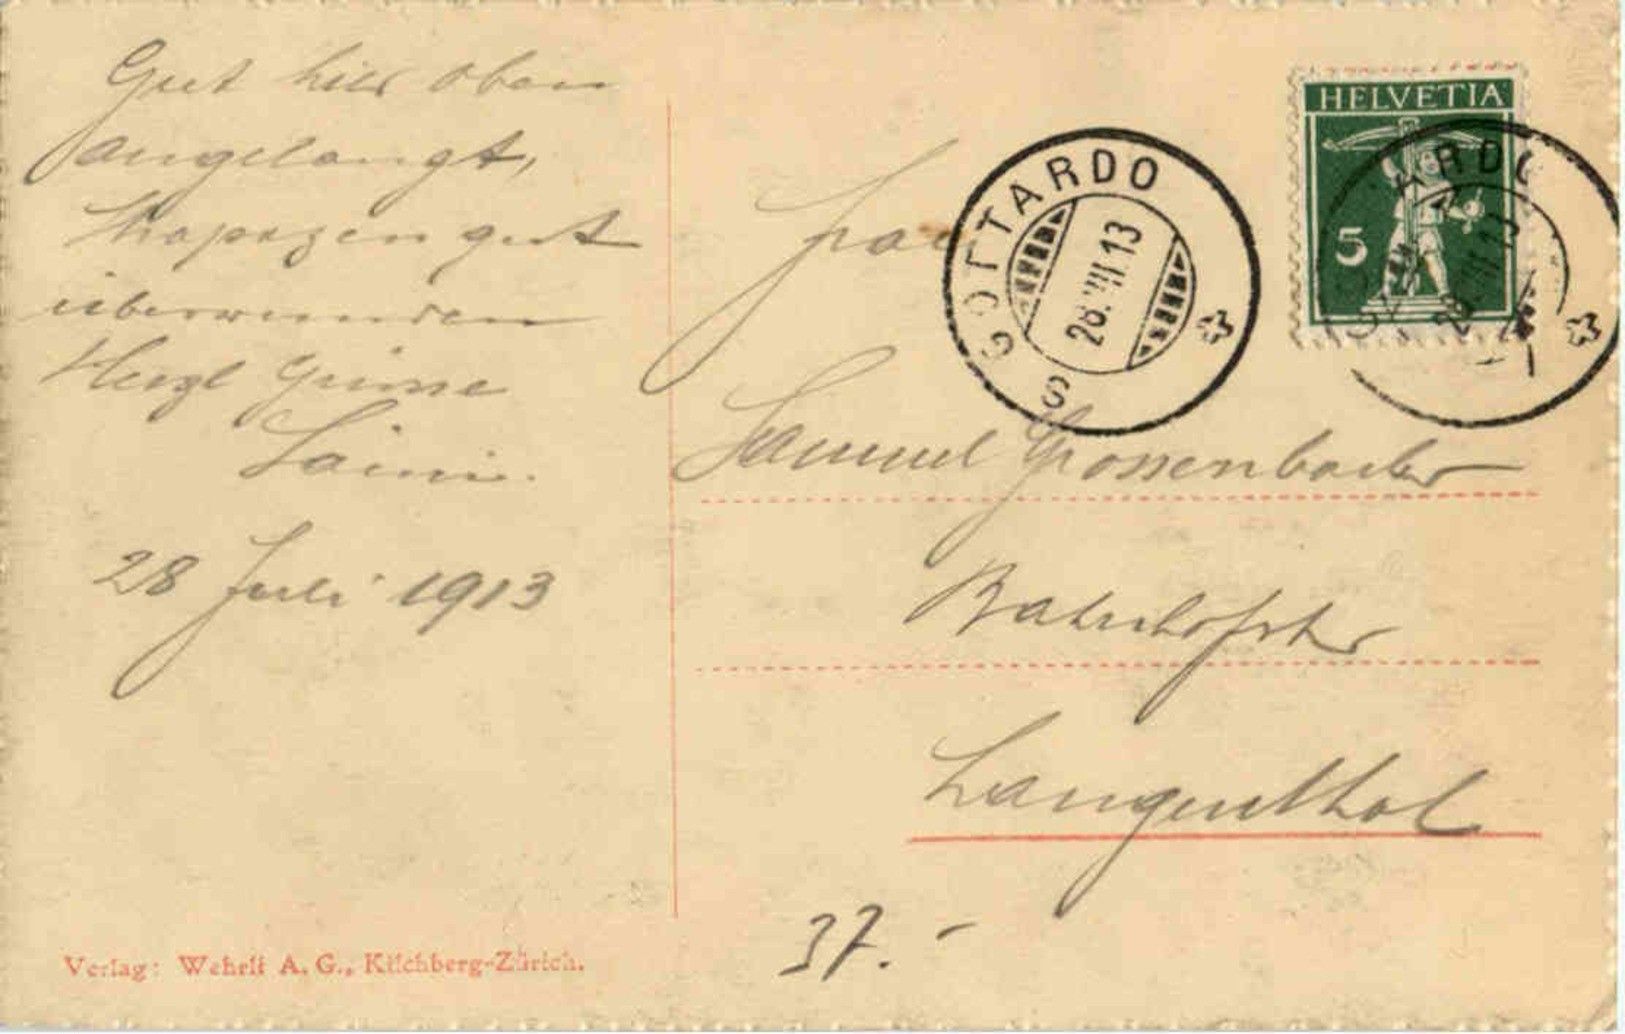 Gut hier oben
angelangt,
Strapazen gut
überwunden
Herzl Grüsse
28 Juli 1913
Verlag: Wehrli A. G., Kilchberg-Zürich.
HELVETIA
5
GOTTARDO
28.VIII.13
S
Samuel Grossenbacher
Bahnhofstr
Langenthal
37.-